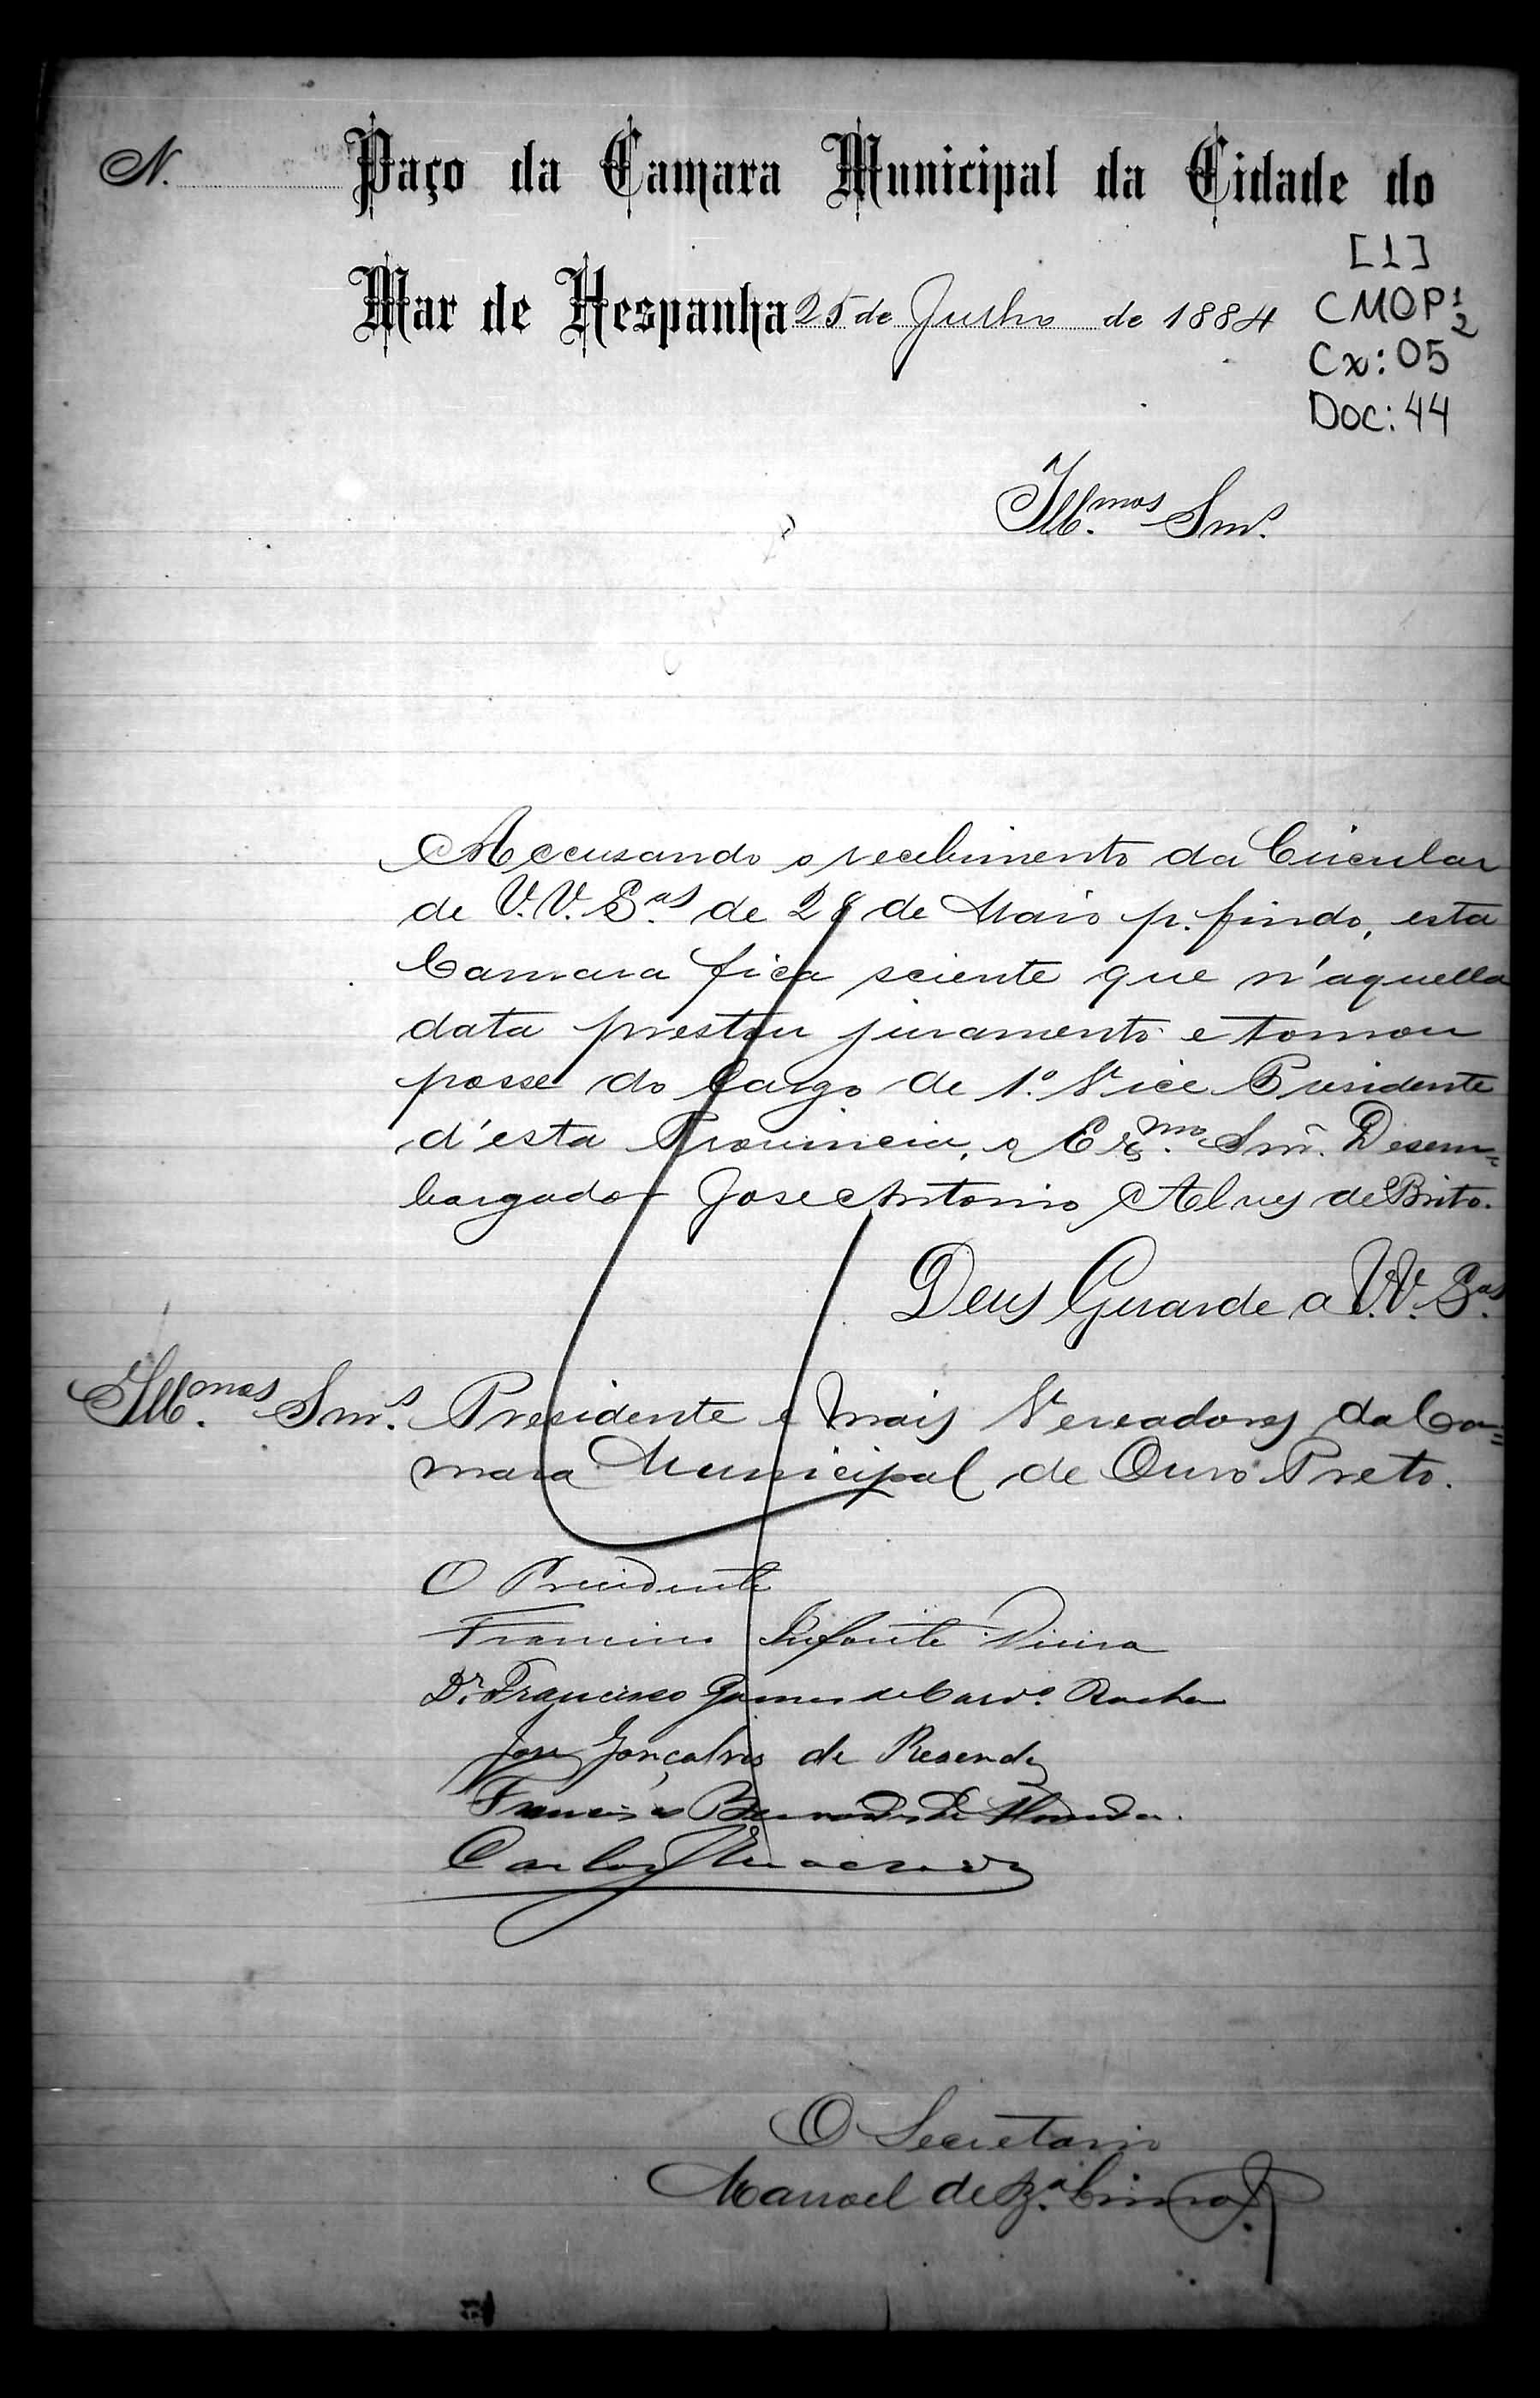 N. Paço da Camara Municipal da Cidade do
Mar de Hespanha 25 de Julho de 1884
[1]
CMOP 1/2
Cx: 05
Doc: 44
Illmos. Snrs.
Accusando o recebimento da Circular
de V.V. Sas. de 28 de Maio p. findo, esta
Camara fica sciente que n'aquella
data prestou juramento e tomou
posse do Cargo de 1º Vice Presidente
d'esta Provincia, o Exmo. Snr. Desem=
bargador Jose Antonio Alves de Brito.
Deus Guarde a V.V. Sas.
Illmos. Snrs. Presidente e mais Vereadores da Ca=
mara Municipal de Ouro Preto.
O Presidente
Francisco Infante Vieira
Dr. Francisco Gomes de Carvº. Rocha
Jose Gonçalves de Resende
Francisco
Carlos
O Secretario
Manoel de